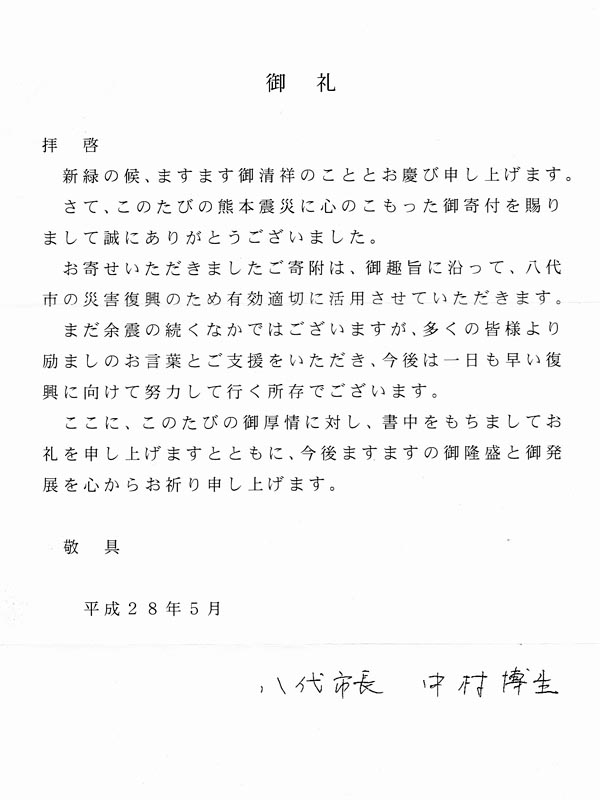 御　礼
拝　啓
　新緑の候、ますます御清祥のこととお慶び申し上げます。
　さて、このたびの熊本震災に心のこもった御寄付を賜り
まして誠にありがとうございました。
　お寄せいただきましたご寄附は、御趣旨に沿って、八代
市の災害復興のため有効適切に活用させていただきます。
　まだ余震の続くなかではございますが、多くの皆様より
励ましのお言葉とご支援をいただき、今後は一日も早い復
興に向けて努力して行く所存でございます。
　ここに、このたびの御厚情に対し、書中をもちましてお
礼を申し上げますとともに、今後ますますの御隆盛と御発
展を心からお祈り申し上げます。
　敬　具
　　平成２８年５月
八代市長　中村博生